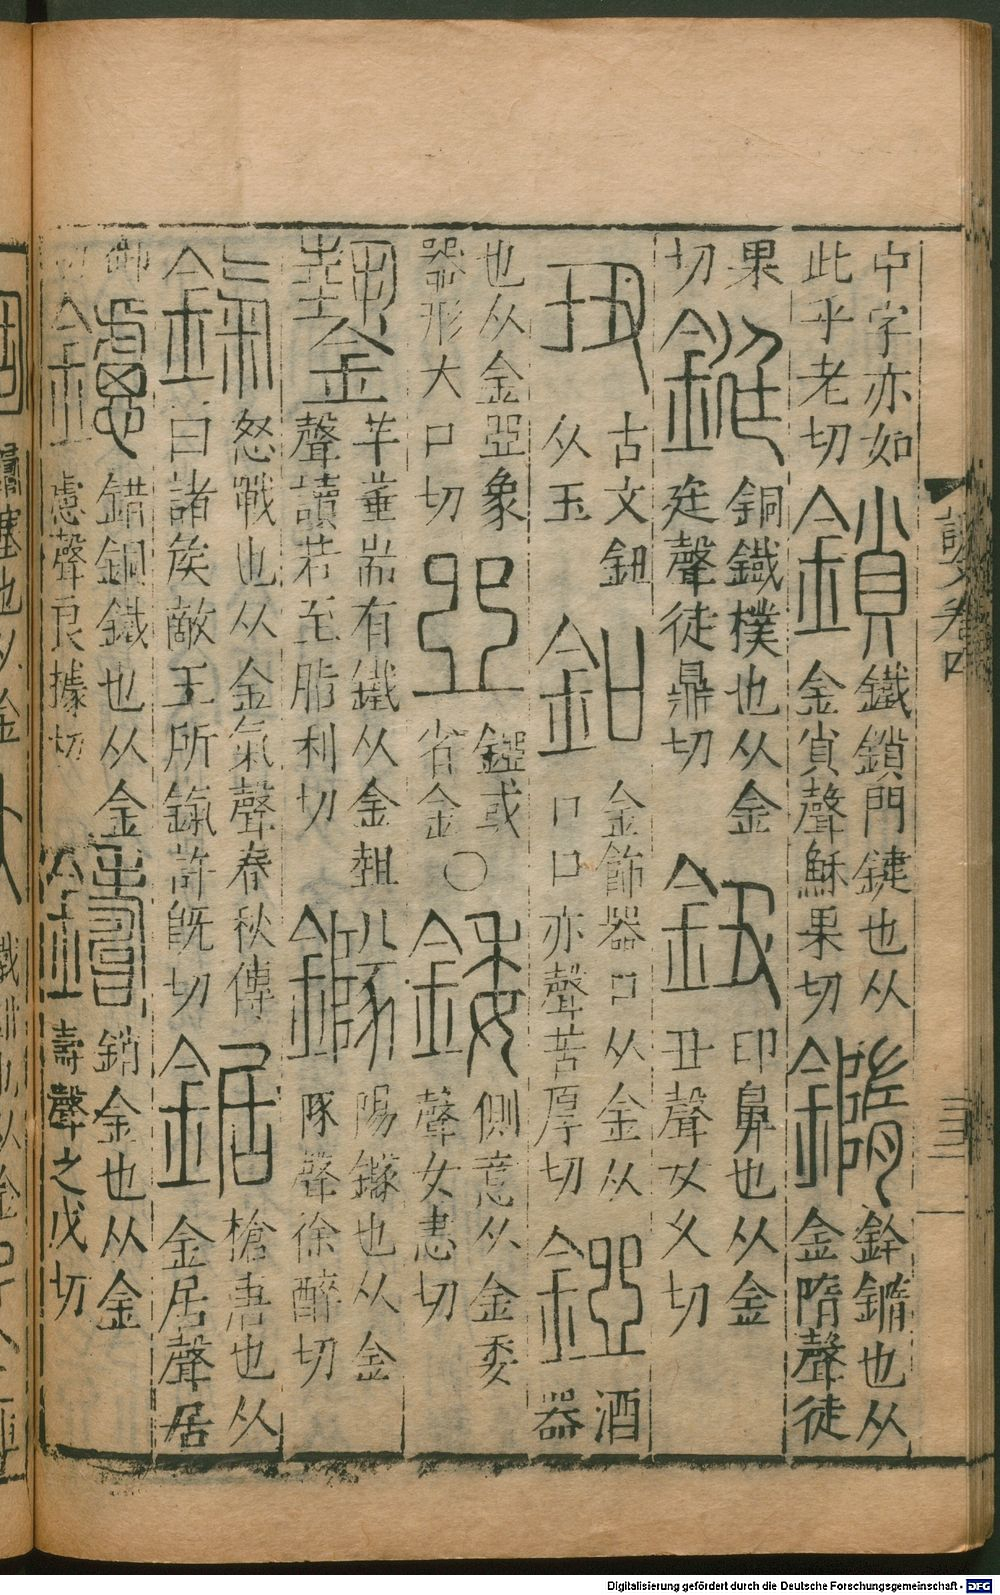 中字亦如
此乎老切
鎖
鐵鎖門鍵也从
金𧴪聲穌果切
鐫
鈐鐫也从
金隋聲徒
果
切
鋌
銅鐵樸也从金
廷聲徒鼎切
鈕
印鼻也从金
丑聲女久切
𤣱
古文鈕
从玉
釦
金飾器口从金从
口口亦聲苦厚切
鋞
酒
器
也从金亞象
器形大口切
亞
鋞或
省金
○
錗
側意从金委
聲女恚切
𨮹
羊箠耑有鐵从金埶
聲讀若至脂利切
鐆
陽鐆也从金
㒸聲徐醉切
鎎
怒戰也从金氣聲春秋傳
曰諸侯敵王所鎎許旣切
鋸
槍唐也从
金居聲居
御
切
鑢
錯銅鐵也从金
慮聲良據切
鑄
銷金也从金
壽聲之戍切
說文卷四
Digitalisierung gefördert durch die Deutsche Forschungsgemeinschaft - DFG